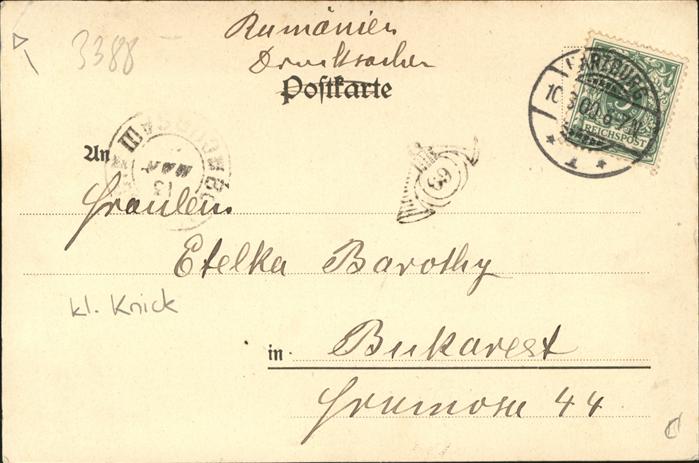 3388
Rumänien
Drucksachen
Postkarte
HARZBURG
10.3.00.6-7N.
* 1 *
5
REICHSPOST
An
III
13
MAR
69
Fräulein
Etelka Barothy
kl. Knick
in Bukarest
Frumosa 44